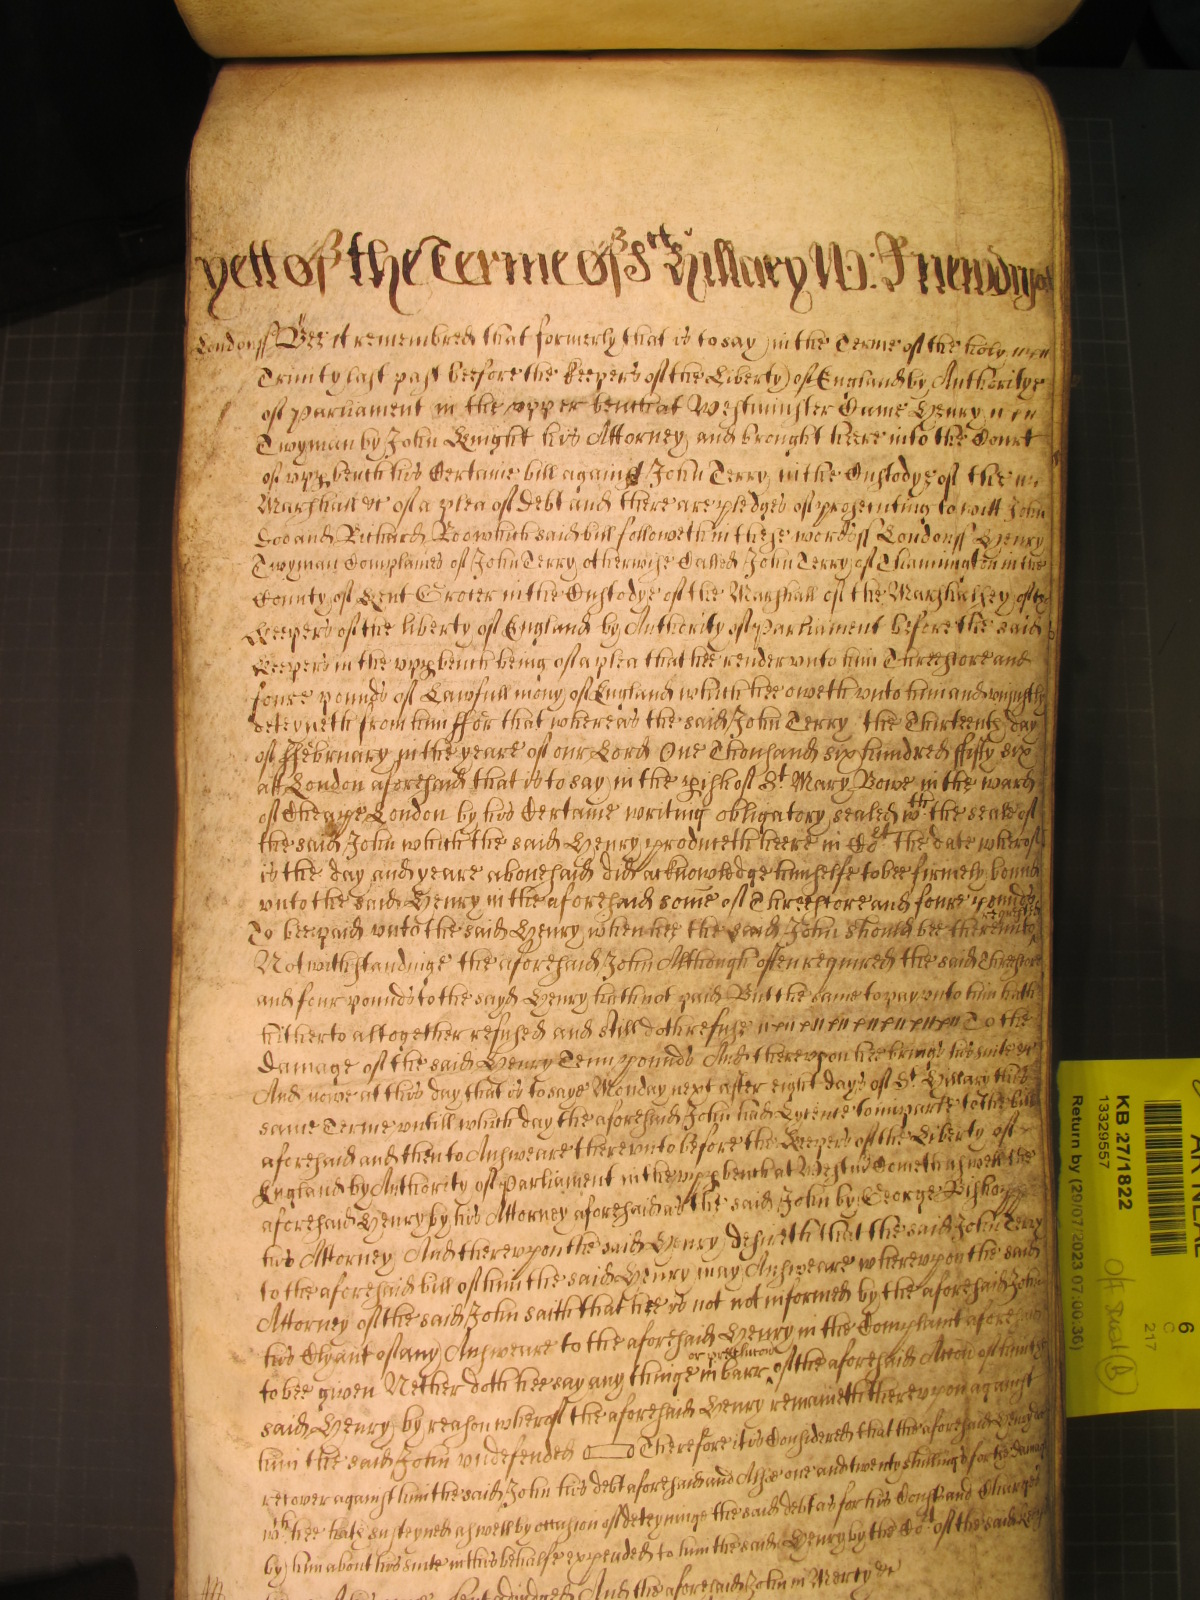 yett of the Terme of St Hillary W: Friendly
Londonss Bee it remembred that formerly that is to say in the Terme of the holy
Trinity last past beefore the Keepers of the Liberty of England by Authoritye
of Parliament in the upper bench att Westminster Came Henry
Twyman by John Knight his Attorney and brought heere into the Court
of upp bench his Certaine bill against John Terry in the Custodye of the
Marshall &c of a plea of Debt and there are pledges of prosecuting to witt John
Doo and Richard Roo which said bill followeth in these words ss Londonss Henry
Twyman Complaines of John Terry otherwise Called John Terry of Thannington in the
County of Kent Grocer in the Custodye of the Marshall of the Marshalsey of the
Keepers of the liberty of England by Authority of Parliament before the said
Keepers in the upp bench being of a plea that hee render unto him Threescore and
foure pounds of Lawfull mony of England which hee oweth unto him and uniustly
deteyneth from him ffor that whereas the said John Terry the Thirteenth day
of ffebruary in the yeare of our Lord One Thousand six hundred ffifty six
att London aforesaid that is to say in the pish of St Mary Bowe in the ward
of Cheape London by his Certaine writing obligatory sealed wth the seale of
the said John which the said Henry produceth heere in Cort the date wherof
is the day and yeare abovesaid did acknowledge himselfe to bee firmely bound
unto the said Henry in the aforesaid some of Threescore and foure pounds
To bee paid unto the said Henry when hee the said John should bee thereunto requested
Notwithstandinge the aforesaid John Although often required the said Threescore
and four pounds to the sayd Henry hath not paid But the same to pay unto him hath
hitherto altogether refused and still doth refuse To the
damage of the said Henry Tenn pounds And thereupon hee brings his suite &c
And nowe at this day that is to saye Monday next after eight days of St Hillary this
same Terme untill which day the aforesaid John had Lycence to imparle to the bill
aforesaid and then to Answeare thereunto before the Keepers of the Liberty of
England by Authority of Parliament in the upp bench at Westmr Cometh aswell the
aforesaid Henry by his Attorney aforesaid as the said John by George Bishopp
his Attorney And thereupon the said Henry desireth that the said John Terry
to the aforesaid bill of him the said Henry may Answeare whereupon the said
Attorney of the said John saith that hee is not not informed by the aforesaid John
his Clyant of any Answeare to the aforesaid Henry in the Complaint aforesaid
to bee given Nether doth hee say any thinge in barr or preclucon of the aforesaid Accon of him the
said Henry by reason wherof the aforesaid Henry remaineth thereupon against
him the said John undefended Therefore it is Considered that the aforesaid Henry
recover against him the said John his debt aforesaid and Alsoe one and twenty shillings for the damage
wch hee hath susteyned aswell by occasion of deteyninge the said debt as for his Costs and Charges
by him about his suite in this behalfe expended to him the said Henry by the Cort of the said Keepers
And the aforesaid John in Mercy &c
KB 27/1822
13329557
Return by (20/07/2023 07:00:36)
6
C
217